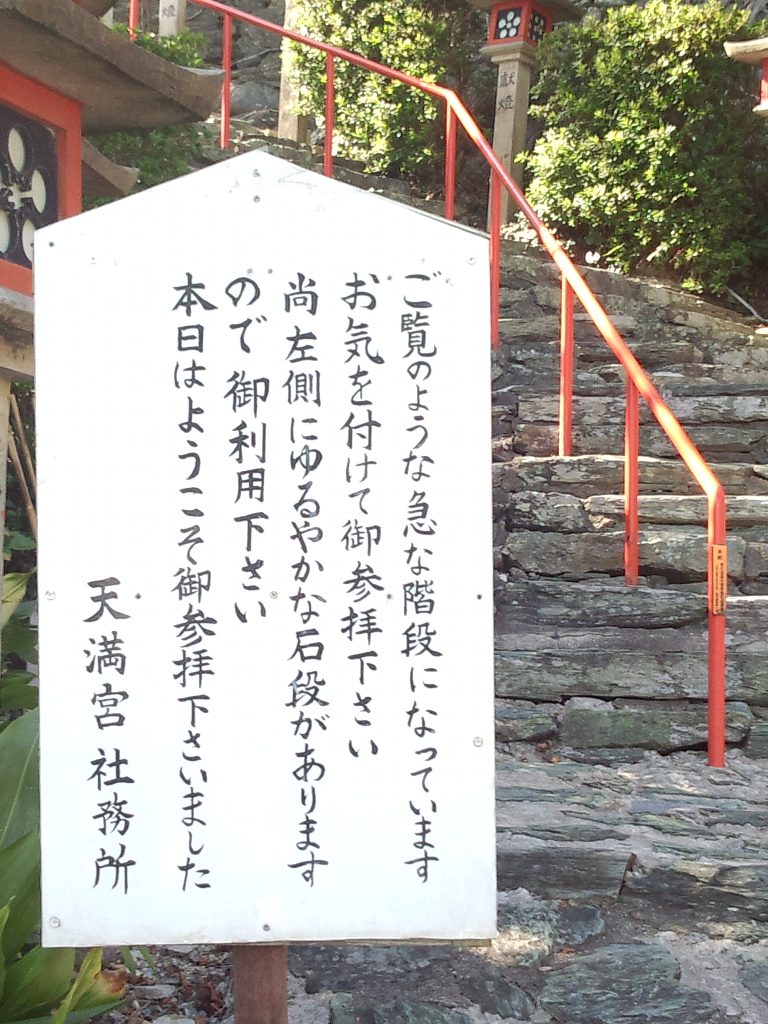 ご覧のような急な階段になっています
お気を付けて御参拝下さい
尚左側にゆるやかな石段があります
ので御利用下さい
本日はようこそ御参拝下さいました
天満宮 社務所
献燈
燈